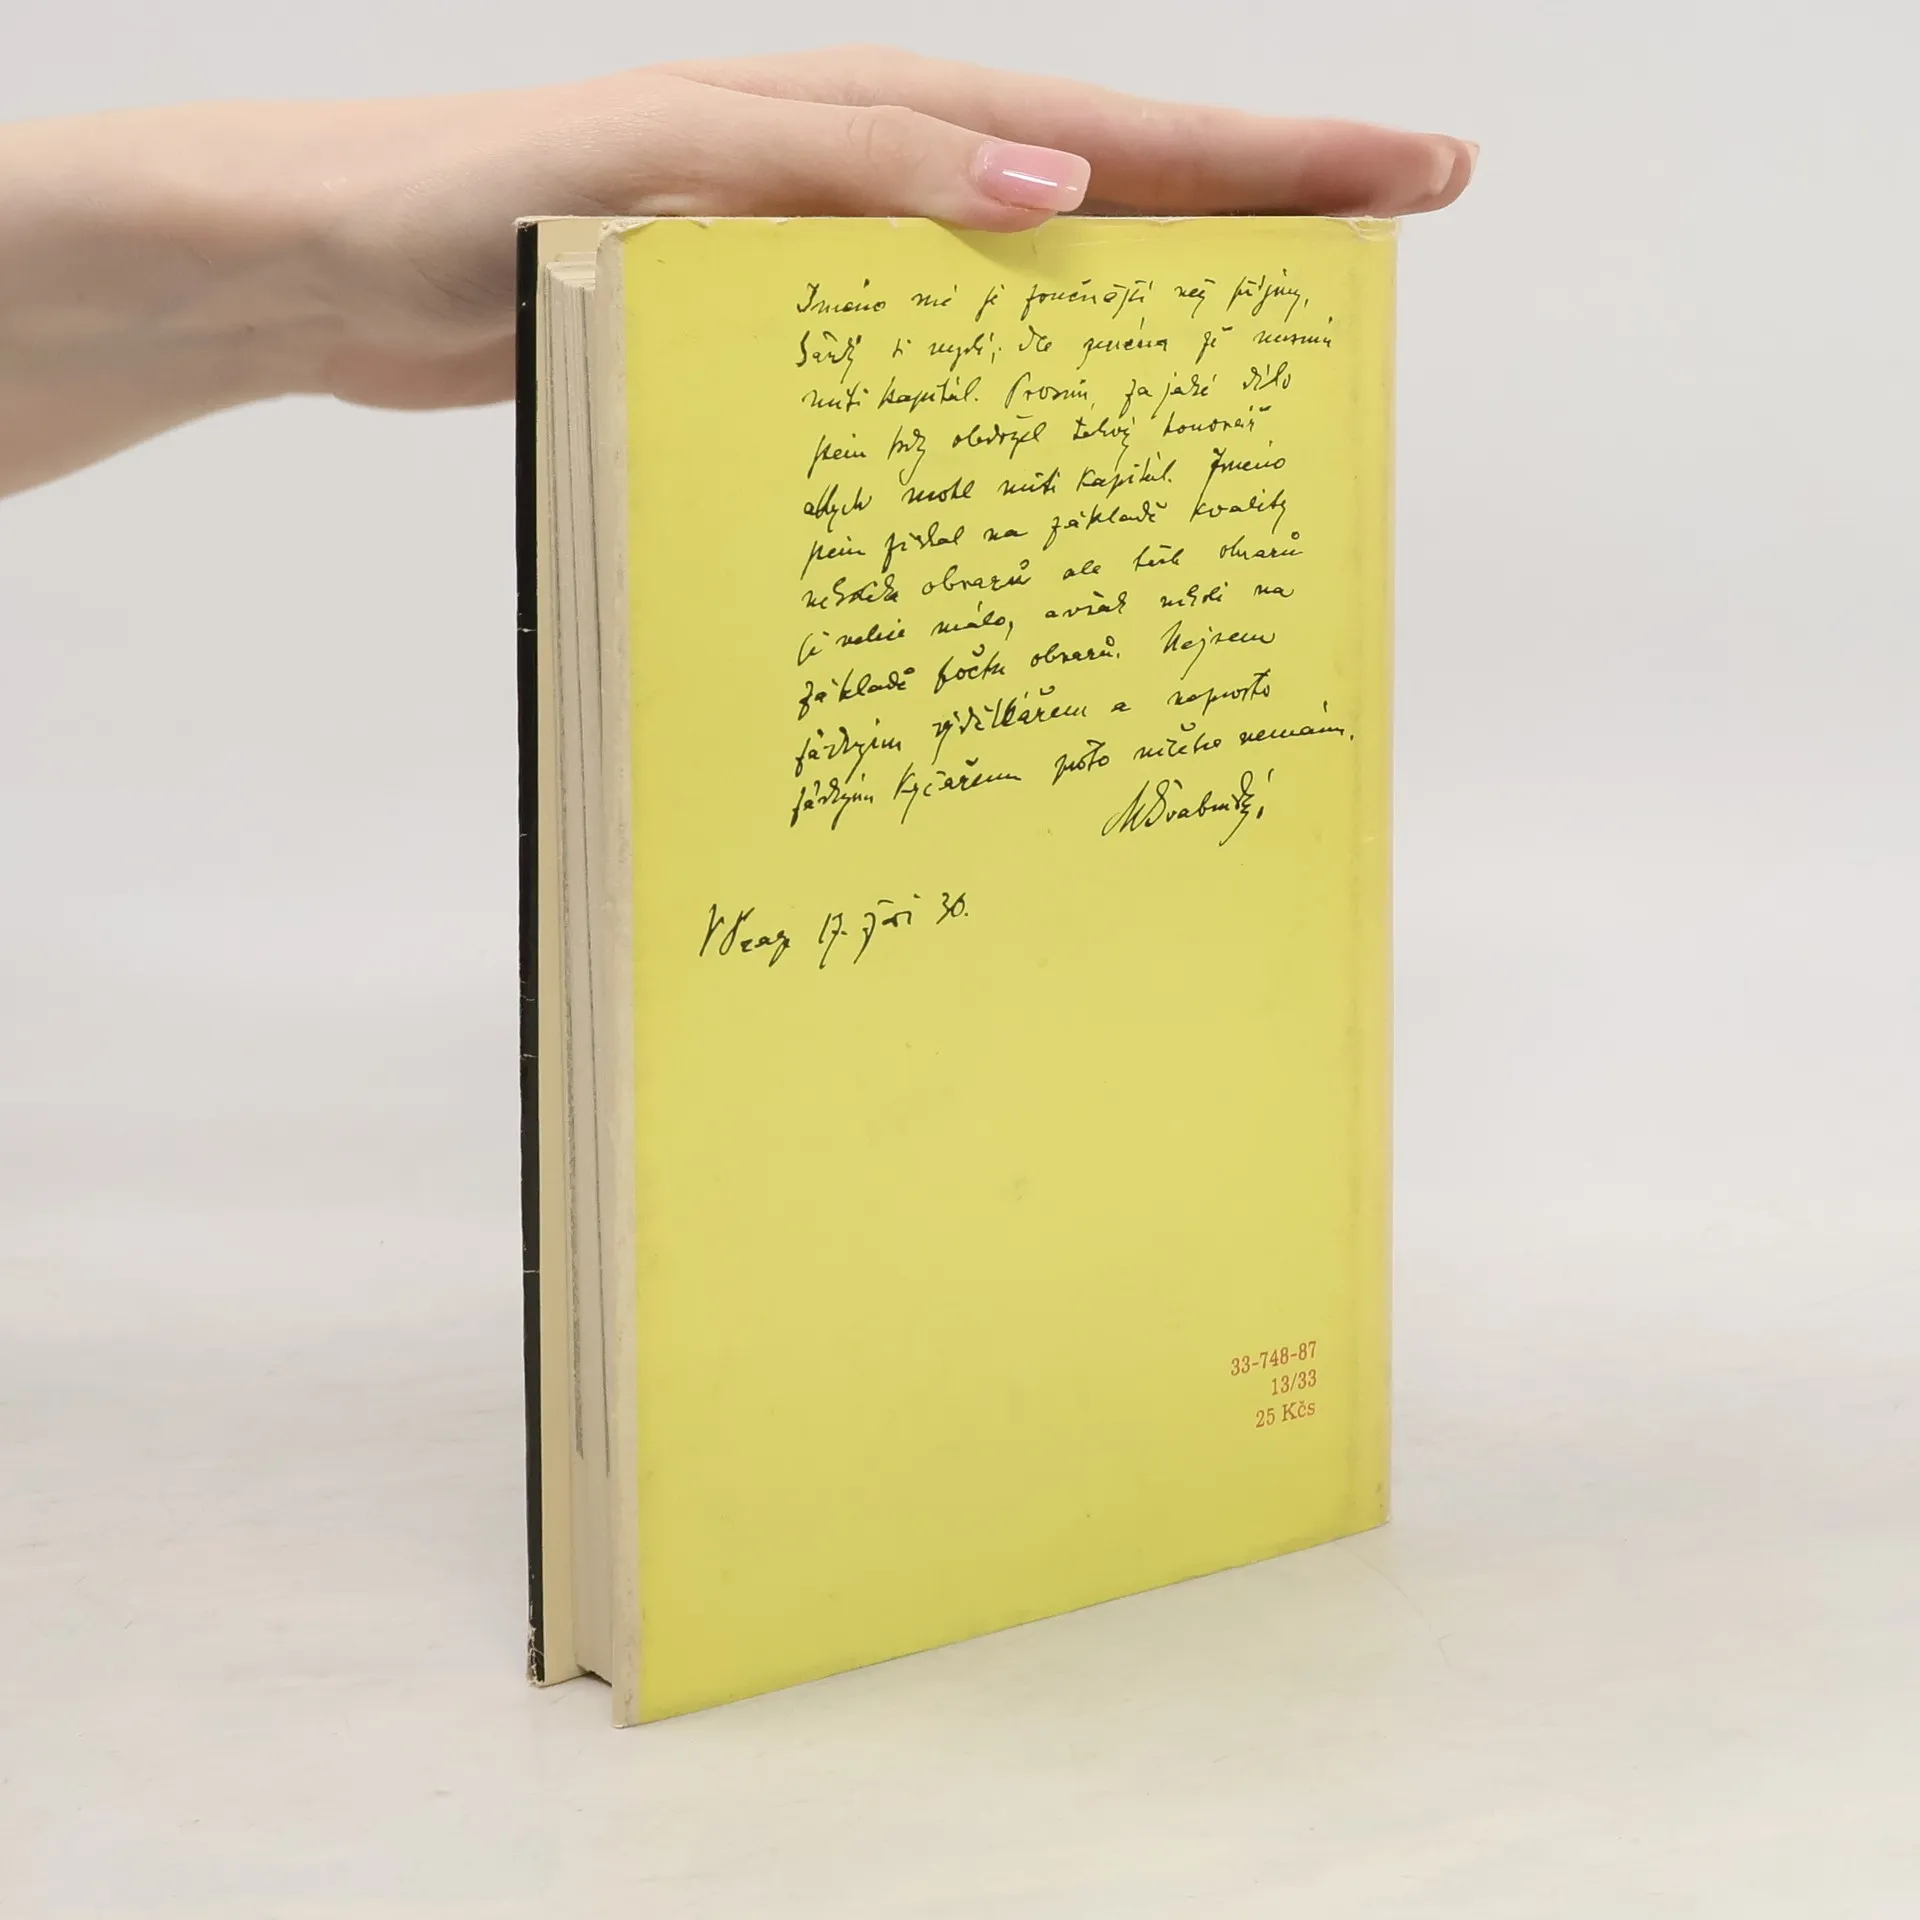 Jméno mé je zvučnější než příjmy,
každý si myslí, dle jména že musím
míti kapitál. Prosím, za jaké dílo
jsem kdy obdržel takový honorář
abych mohl míti kapitál. Jméno
jsem získal na základě kvality
několika obrazů ale těch obrazů
je velice málo, avšak nikoli na
základě počtu obrazů. Nejsem
žádným výdělkářem a naprosto
žádným kýčařem proto ničeho nemám.
MŠvabinský
V Praze 17. září 30.
33-748-87
13/33
25 Kčs